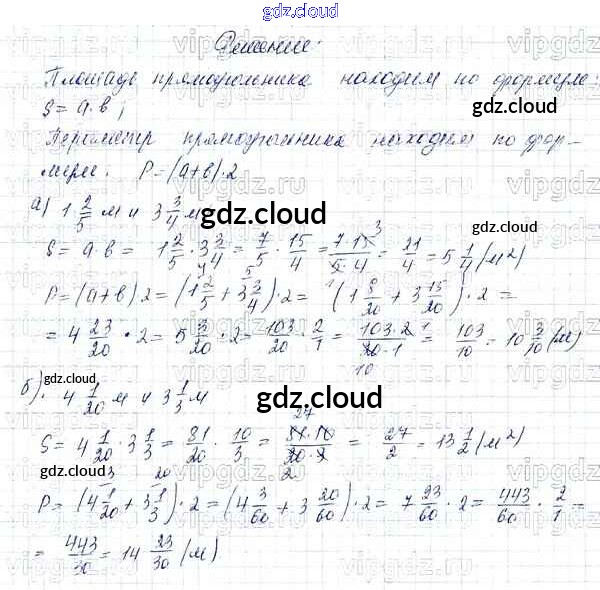 gdz.cloud
Решение:
Площадь прямоугольника находим по формуле:
S = a·в;
gdz.cloud
Периметр прямоугольника находим по фор-
муле: P = (a+в)·2
gdz.cloud
а) 1 2/5 м и 3 3/4 м
gdz.cloud
S = a·в = 1 2/5 · 3 3/4 = 7/5 · 15/4 = 7·15/5·4 = 21/4 = 5 1/4 (м²)
P = (a+в)2 = (1 2/5 + 3 3/4)·2 = (1 8/20 + 3 15/20)·2 =
= 4 23/20 · 2 = 5 3/20 · 2 = 103/20 · 2/1 = 103·2/20·1 = 103/10 = 10 3/10 (м)
gdz.cloud
б). 4 1/20 м и 3 1/3 м
gdz.cloud
S = 4 1/20 · 3 1/3 = 81/20 · 10/3 = 81·10/20·3 = 27/2 = 13 1/2 (м²)
P = (4 1/20 + 3 1/3)·2 = (4 3/60 + 3 20/60)·2 = 7 23/60 · 2 = 443/60 · 2/1 =
= 443/30 = 14 23/30 (м)
gdz.cloud